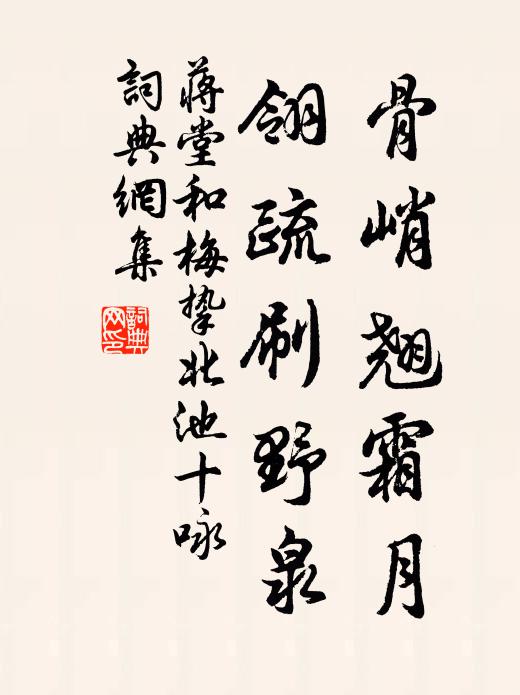 骨峭翹霜月
翎疏刷野泉
蔣堂和梅摯北池十咏
詞典網集
詞典網印